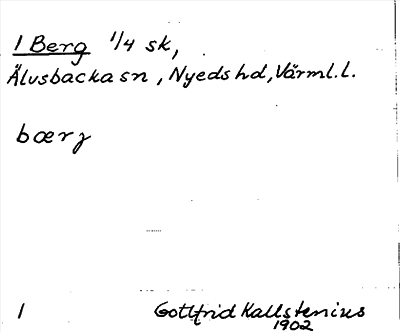 1 Berg 1/4 sk,
Älvsbacka sn, Nyeds hd, Värml. l.
bærj
1 Gottfrid Kallstenius
1902